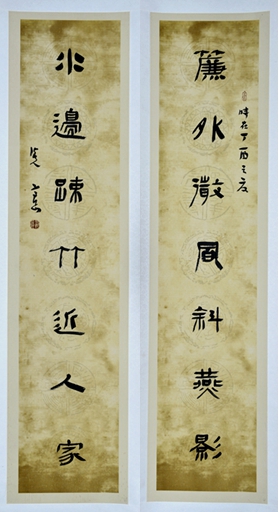 簾外微風斜燕影
時在丁酉之夏
水邊疎竹近人家